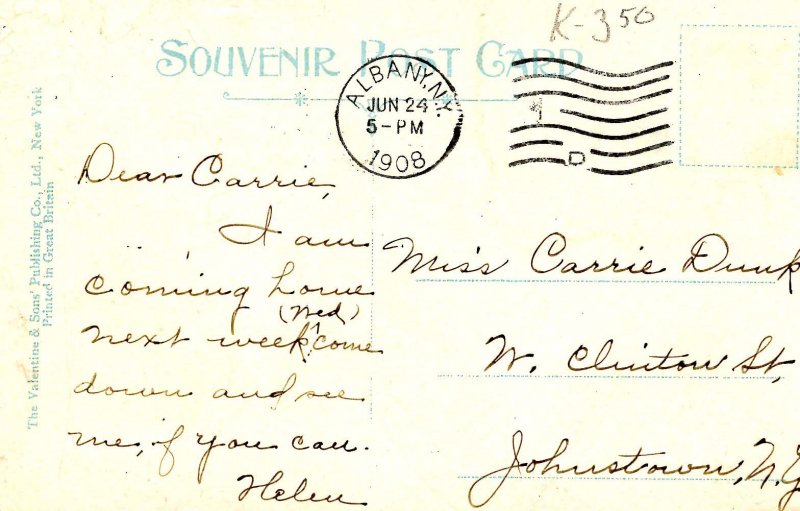 K-350
SOUVENIR POST CARD
ALBANY, N.Y.
JUN 24
5-PM
1908
1
D
The Valentine & Sons' Publishing Co., Ltd., New York
Printed in Great Britain
Dear Carrie,
I am
coming home
(Wed)
next week, come
down and see
me, if you can.
Helen
Miss Carrie Dunk
W. Clinton St.
Johnstown, N.Y